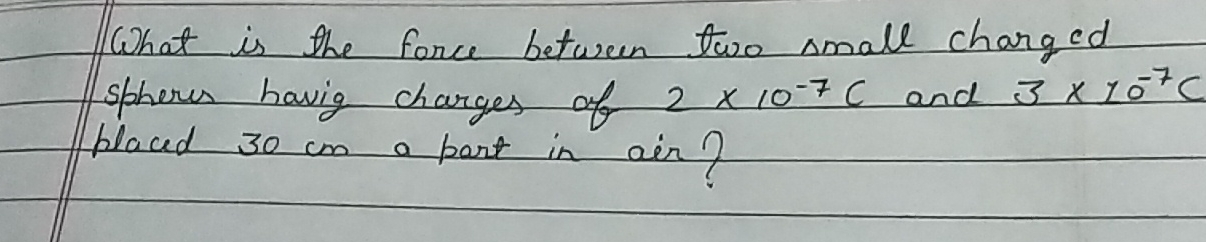 What is the force between two small charged
spheres havig charges of 2 x 10⁻⁷ C and 3 x 10⁻⁷ C
placed 30 cm a part in air?